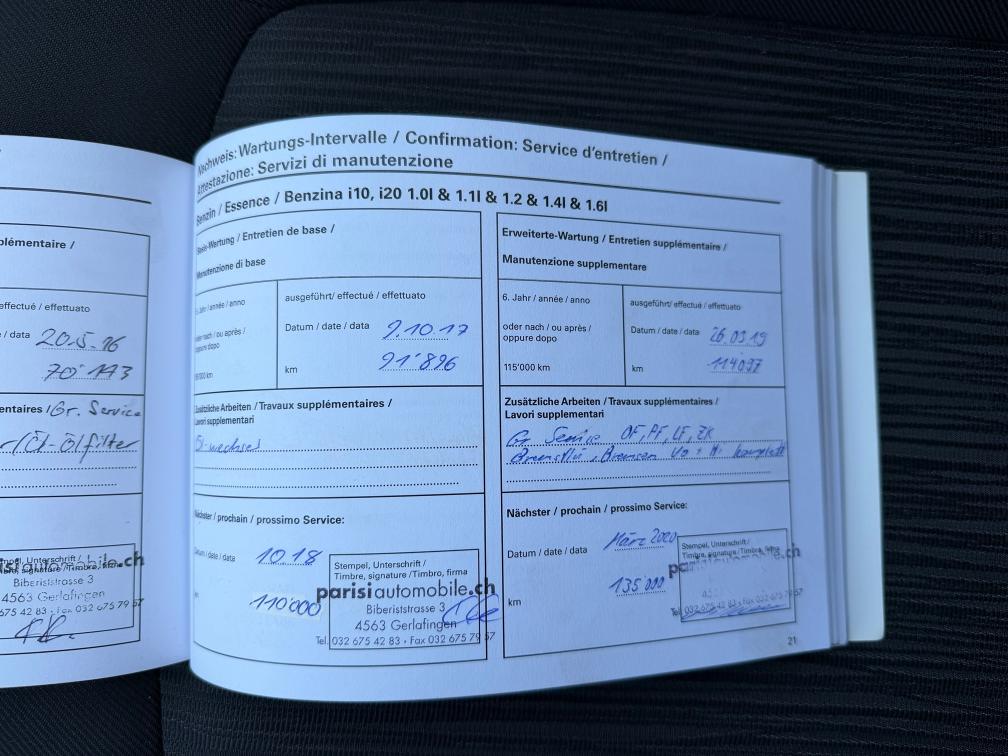 plémentaire /
effectué / effettuato
/ data 20.5.16
70'113
entaires / Gr. Service
Öl-Ölfilter
Stempel, Unterschrift /
Timbre, signature / Timbro, firma
parisiautomobile.ch
Biberiststrasse 3
4563 Gerlafingen
675 42 83 • Fax 032 675 79 57
Nachweis: Wartungs-Intervalle / Confirmation: Service d'entretien /
Attestazione: Servizi di manutenzione
Benzin / Essence / Benzina i10, i20 1.0l & 1.1l & 1.2 & 1.4l & 1.6l
Basis-Wartung / Entretien de base /
Manutenzione di base
Jahr / année / anno
oder nach / ou après /
oppure dopo
000 km
ausgeführt/ effectué / effettuato
Datum / date / data 9.10.17
km 91'896
Zusätzliche Arbeiten / Travaux supplémentaires /
Lavori supplementari
Öl-wechsel
Nächster / prochain / prossimo Service:
Datum / date / data 10.18
110'000
Stempel, Unterschrift /
Timbre, signature / Timbro, firma
parisiautomobile.ch
Biberiststrasse 3
4563 Gerlafingen
Tel. 032 675 42 83 • Fax 032 675 79 57
Erweiterte-Wartung / Entretien supplémentaire /
Manutenzione supplementare
6. Jahr / année / anno
oder nach / ou après /
oppure dopo
115'000 km
ausgeführt/ effectué / effettuato
Datum / date / data 26.03.19
km 114'097
Zusätzliche Arbeiten / Travaux supplémentaires /
Lavori supplementari
Gr Service OF, PF, LF, ZK
Bremsflü, Bremsen Vo + Hi komplett
Nächster / prochain / prossimo Service:
Datum / date / data März 2020
km 135'000
Stempel, Unterschrift /
Timbre, signature / Timbro, firma
Tel. 032 675 42 83 • Fax 032 675 79 57
21